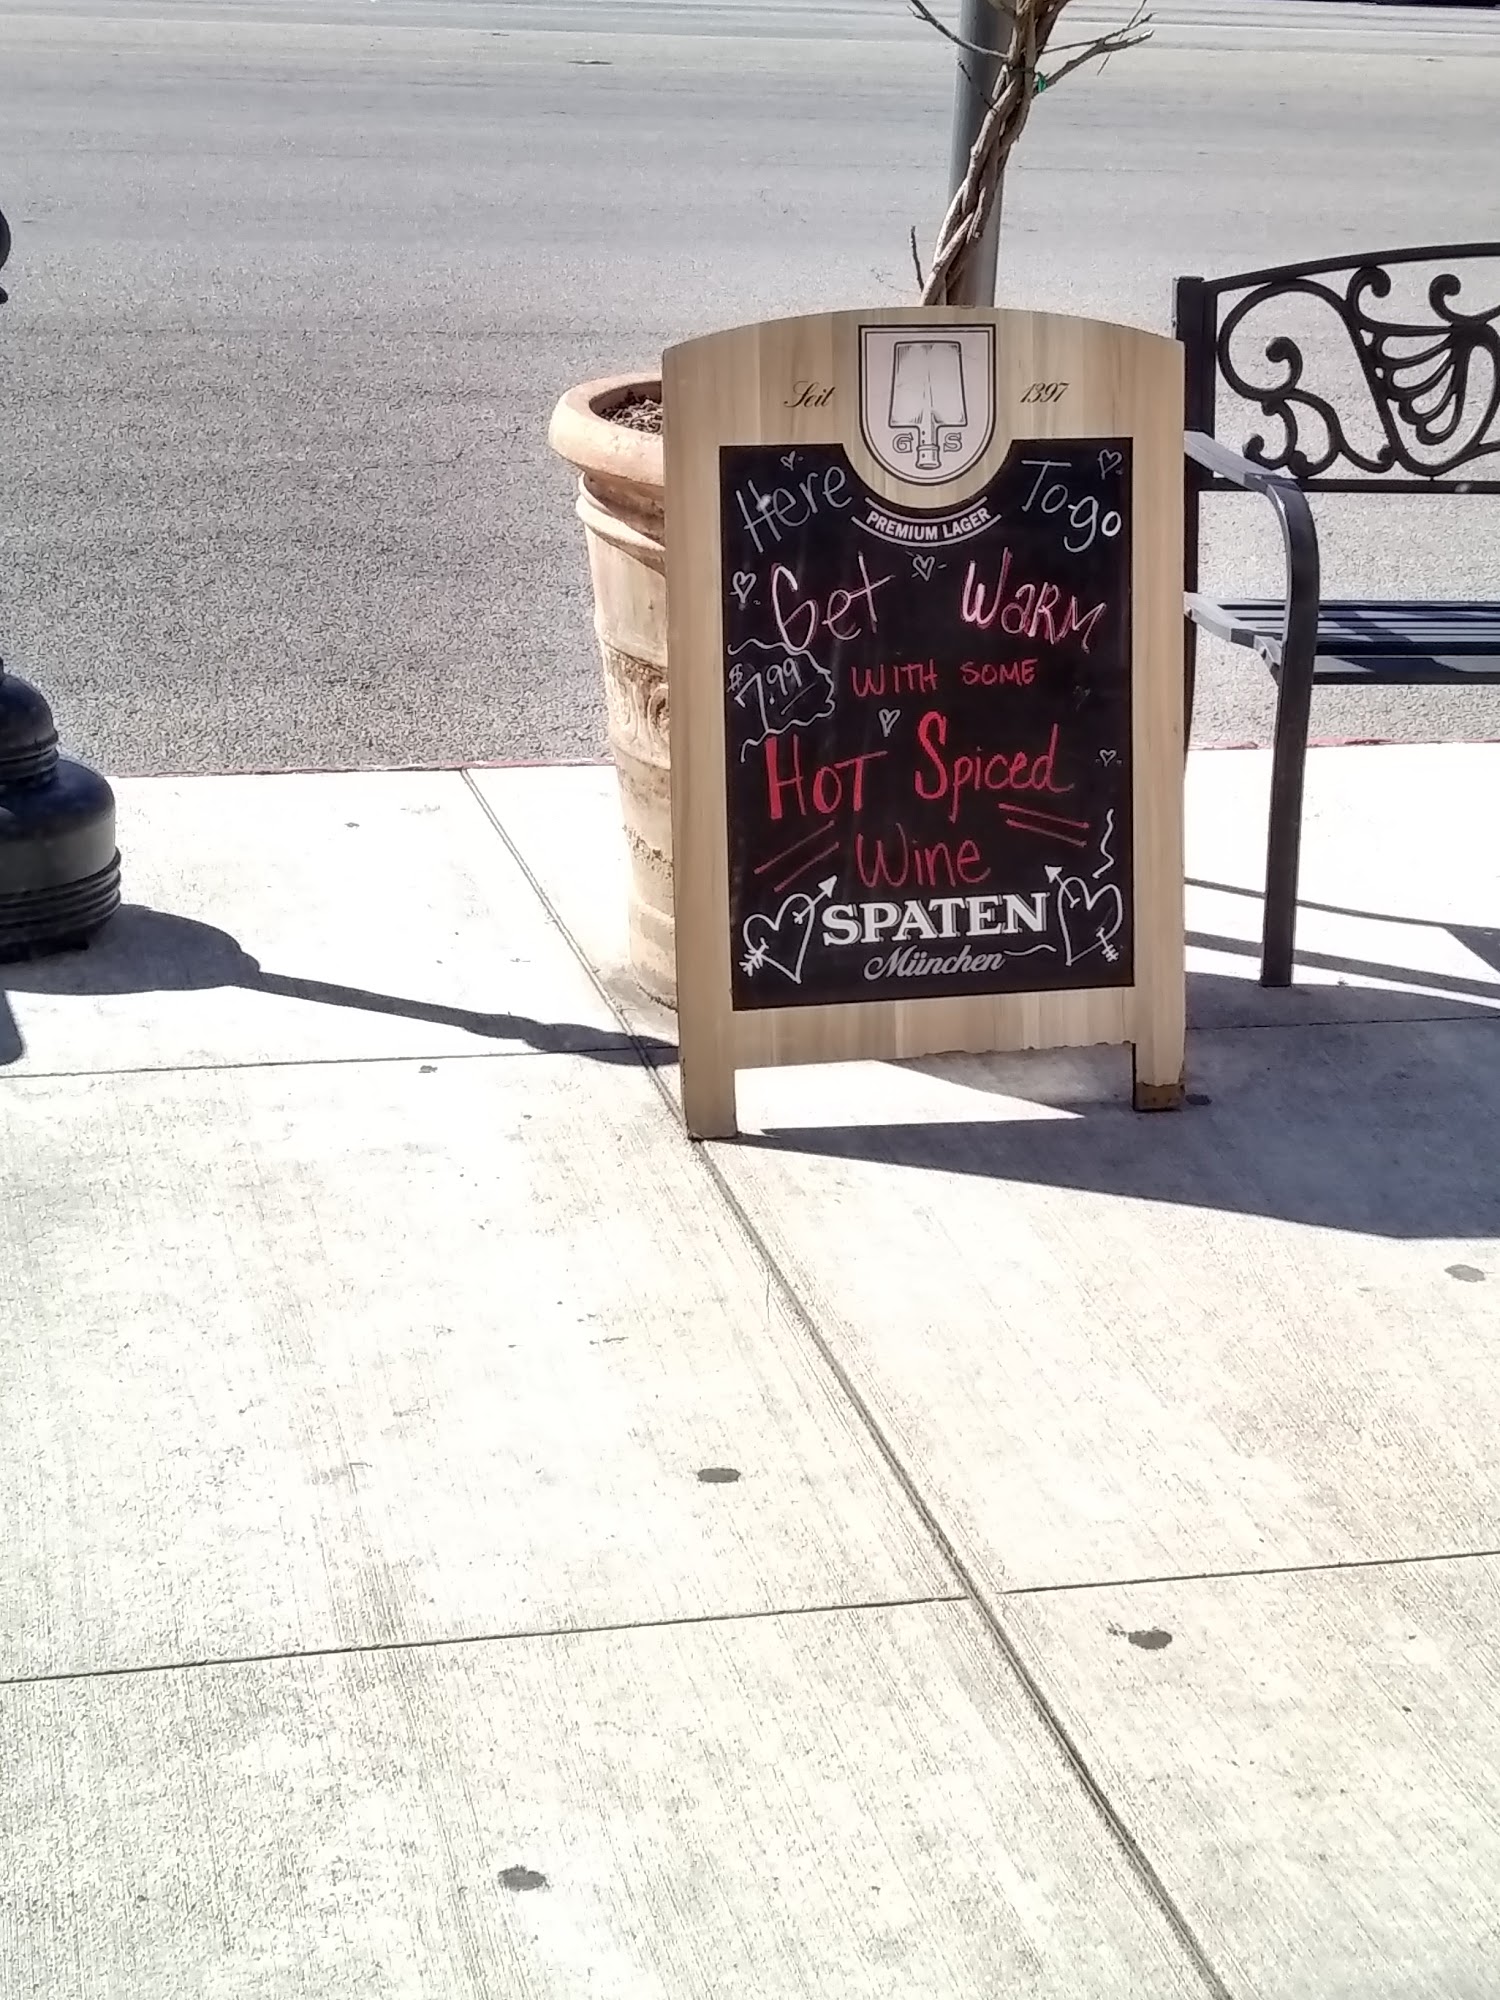 Seit 1397
G S
PREMIUM LAGER
Here To-go
Get Warm
$7.99
WITH SOME
Hot Spiced
Wine
SPATEN
München